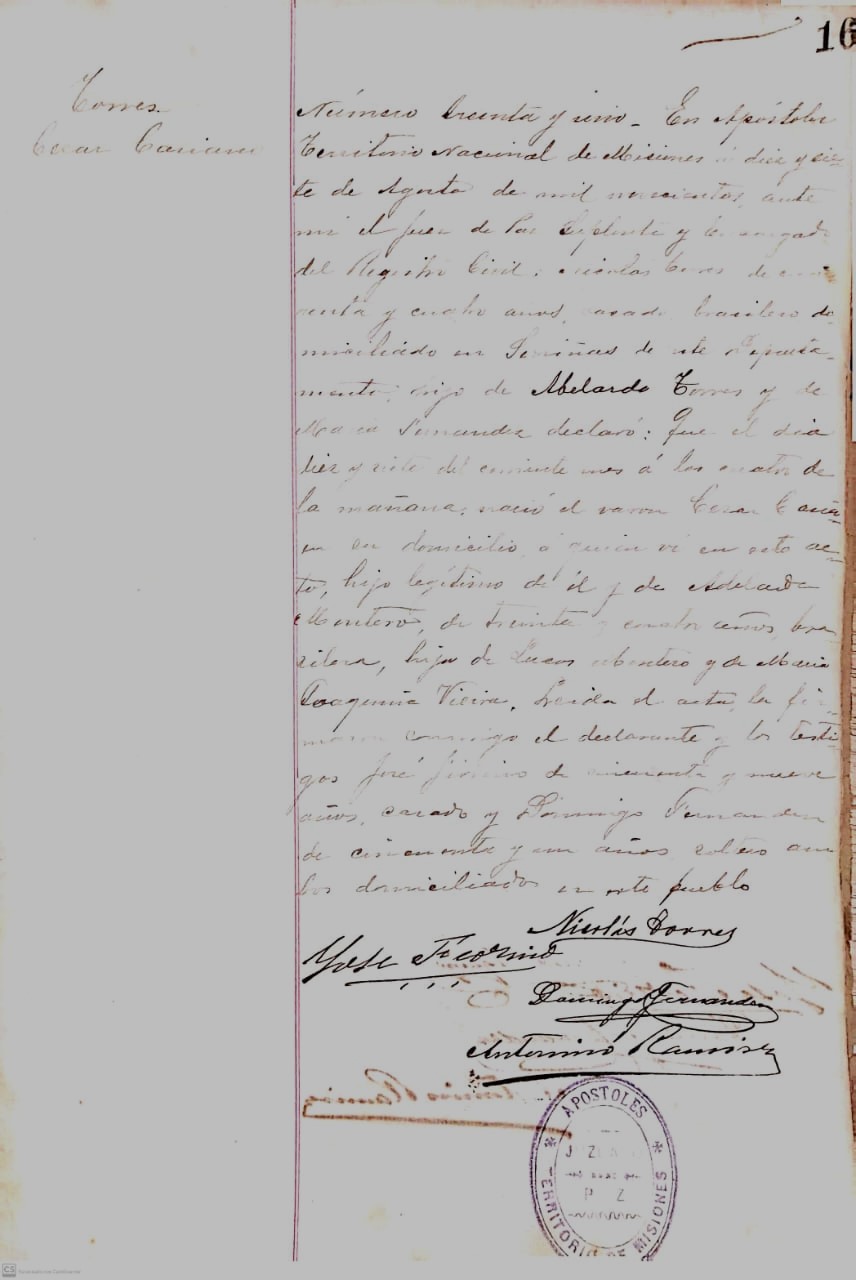 16
Torres
Cezar Cassiano
Número treinta y uno _ En Apóstoles
Territorio Nacional de Misiones á diez y sie-
te de Agosto de mil novecientos, ante
mi el Juez de Paz Suplente y Encargado
del Registro Civil; Nicolás Torres de
y cuatro años, casado brasilero do-
miciliado en de este Departa-
mento; hijo de Abelardo Torres y de
Maria Fernandez declaró: Que el dia
diez y siete del corriente mes á las cuatro de
la mañana; nació el varon Cezar
en su domicilio, á quien vi en este ac-
to, hijo legítimo de él y de Adelaida
Montero, de treinta y cuatro años, bra-
silera, hija de Lucas Montero y de Maria
Joaquina Vieira. Leida el acta, la fir-
maron conmigo el declarante y los testi-
gos José Fiorino de cincuenta y nueve
años, casado y Domingo Fernandez
de cincuenta y un años, soltero am-
bos domiciliados en este pueblo
Nicolás Torres
Jose Fiorino
Domingo Fernandez
Antonino Ramirez
APOSTOLES
JUZGADO
DE
PAZ
TERRITORIO DE MISIONES
CS